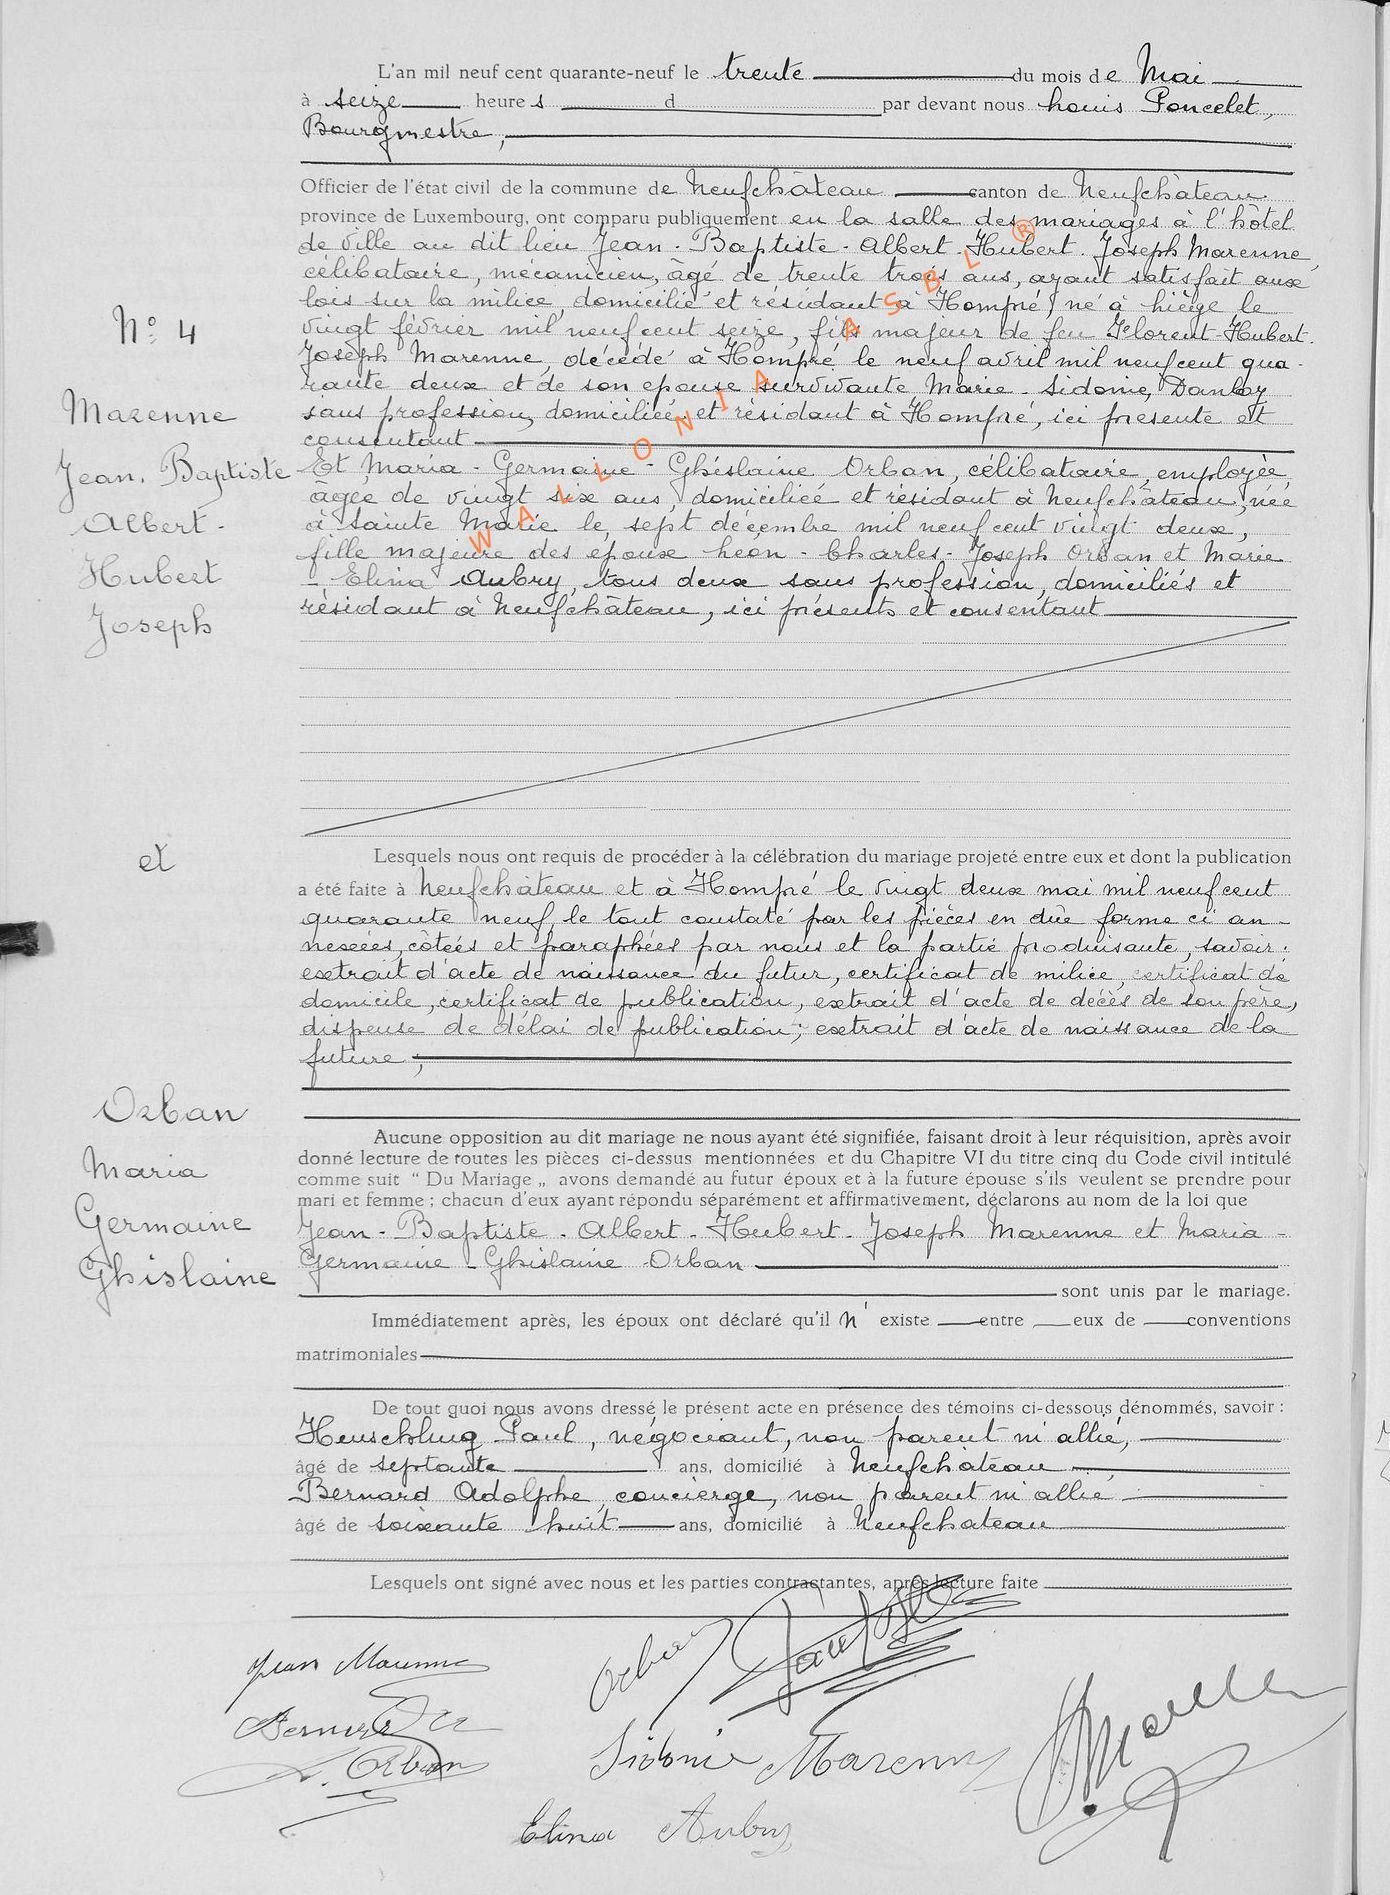 L'an mil neuf cent quarante-neuf le trente du mois de Mai
à seize heures d par devant nous Louis Poncelet,
Bourgmestre,
Officier de l'état civil de la commune de Neufchâteau canton de Neufchâteau
province de Luxembourg, ont comparu publiquement en la salle des mariages à l'hôtel
de ville au dit lieu Jean-Baptiste-Albert-Hubert-Joseph Marenne,
célibataire, mécanicien, âgé de trente trois ans, ayant satisfait aux
lois sur la milice, domicilié et résidant à Hompré, né à Liège le
vingt février mil neuf cent seize, fils majeur de feu Florent-Hubert-
Joseph Marenne, décédé à Hompré le neuf avril mil neuf cent qua-
rante deux et de son epouse survivante Marie-Sidonie Danloy
sans profession, domiciliée et résidant à Hompré, ici presente et
consentant
Et Maria-Germaine-Ghislaine Orban, célibataire, employée,
âgée de vingt six ans, domiciliée et résidant à Neufchâteau, née
à Sainte Marie le sept décembre mil neuf cent vingt deux,
fille majeure des epoux Léon-Charles-Joseph Orban et Marie
-Elina Aubry, tous deux sans profession, domiciliés et
résidant à Neufchâteau, ici présents et consentant
N° 4
Marenne
Jean-Baptiste
Albert-
Hubert
Joseph
et
Orban
Maria
Germaine
Ghislaine
WALLONIA ASBL ®
Lesquels nous ont requis de procéder à la célébration du mariage projeté entre eux et dont la publication
a été faite à Neufchâteau et à Hompré le vingt deux mai mil neuf cent
quarante neuf le tout constaté par les pièces en dûe forme ci an-
nexées, côtées et paraphées par nous et la partie produisante, savoir:
extrait d'acte de naissance du futur, certificat de milice, certificat de
domicile, certificat de publication, extrait d'acte de décès de son père,
dispense de délai de publication; extrait d'acte de naissance de la
future;
Aucune opposition au dit mariage ne nous ayant été signifiée, faisant droit à leur réquisition, après avoir
donné lecture de toutes les pièces ci-dessus mentionnées et du Chapitre VI du titre cinq du Code civil intitulé
comme suit “ Du Mariage „ avons demandé au futur époux et à la future épouse s'ils veulent se prendre pour
mari et femme ; chacun d'eux ayant répondu séparément et affirmativement, déclarons au nom de la loi que
Jean-Baptiste-Albert-Hubert-Joseph Marenne et Maria-
Germaine-Ghislaine Orban
sont unis par le mariage.
Immédiatement après, les époux ont déclaré qu'il n'existe entre eux de conventions
matrimoniales
De tout quoi nous avons dressé le présent acte en présence des témoins ci-dessous dénommés, savoir :
Heuschling Paul, négociant, non parent ni allié,
âgé de septante ans, domicilié à Neufchâteau
Bernard Adolphe, concierge, non parent ni allié
âgé de soixante huit ans, domicilié à Neufchateau
Lesquels ont signé avec nous et les parties contractantes, après lecture faite
Jean Marenne
Orban
L. Orban
Sidonie Marenne
Elina Aubry